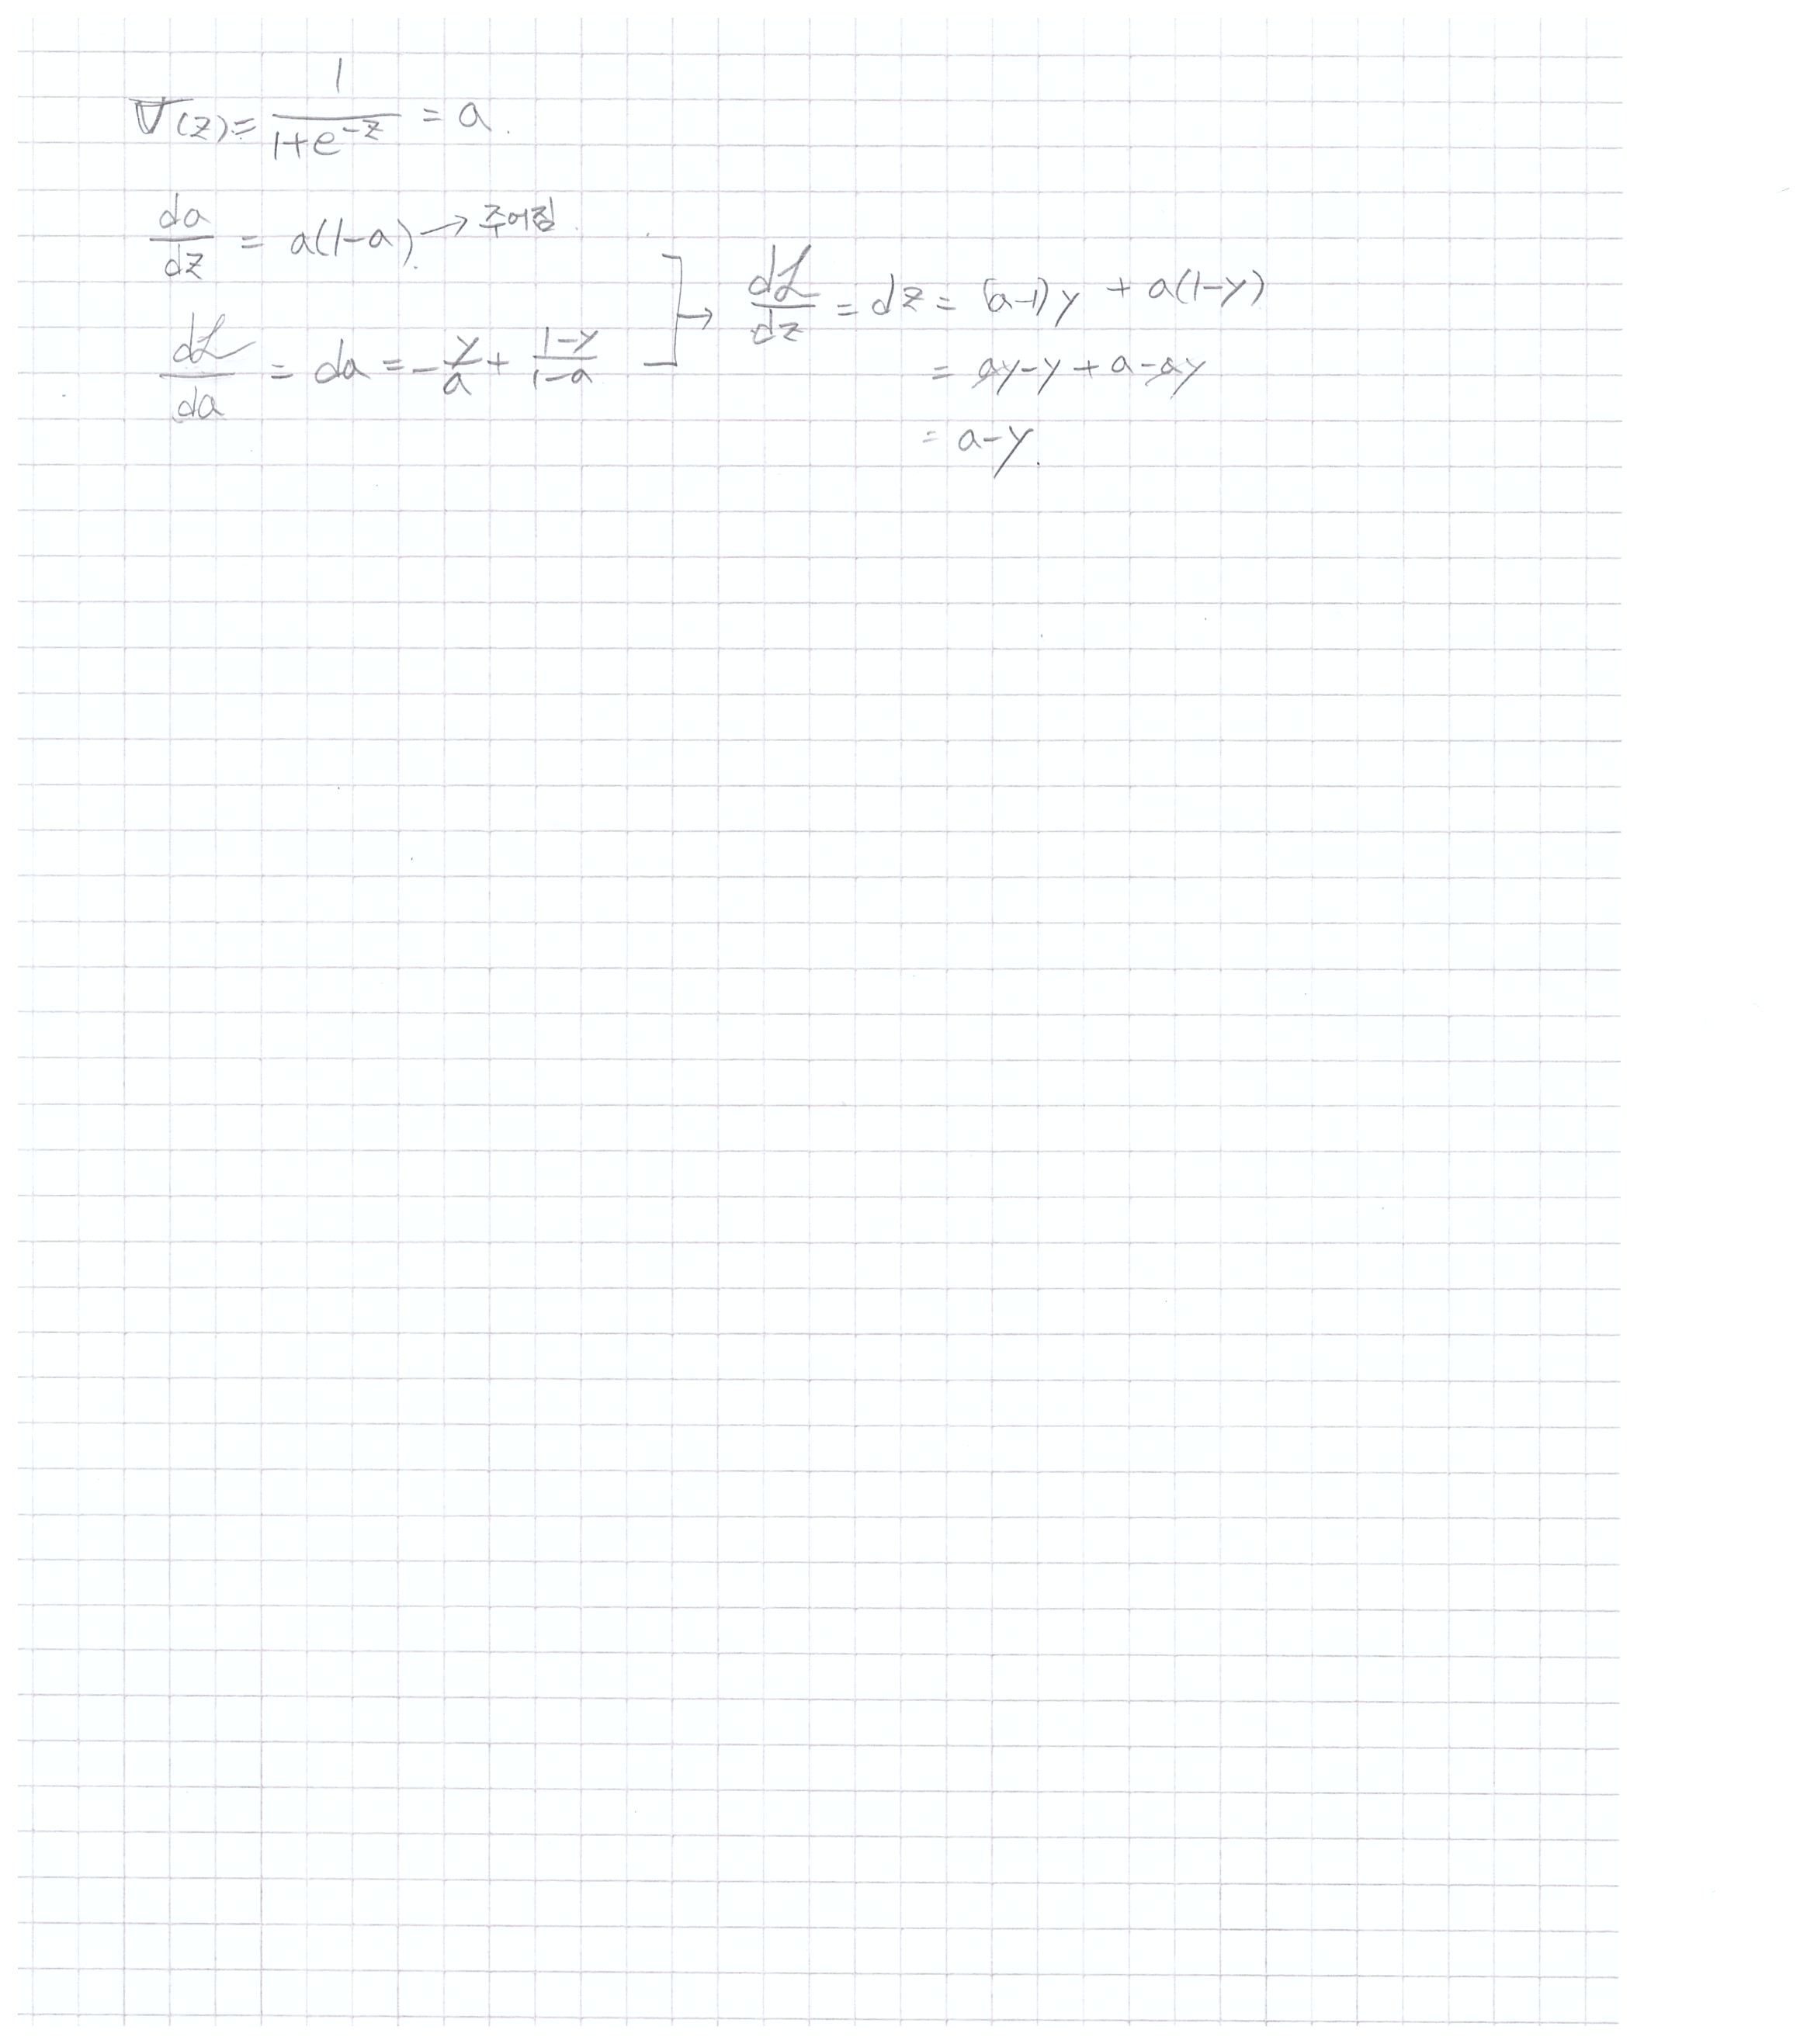 σ(z) = 1/(1+e^-z) = a.
da/dz = a(1-a). → 주어짐.
dL/da = da = -y/a + (1-y)/(1-a)
] → dL/dz = dz = (a-1)y + a(1-y)
= ay-y+a-ay
= a-y.